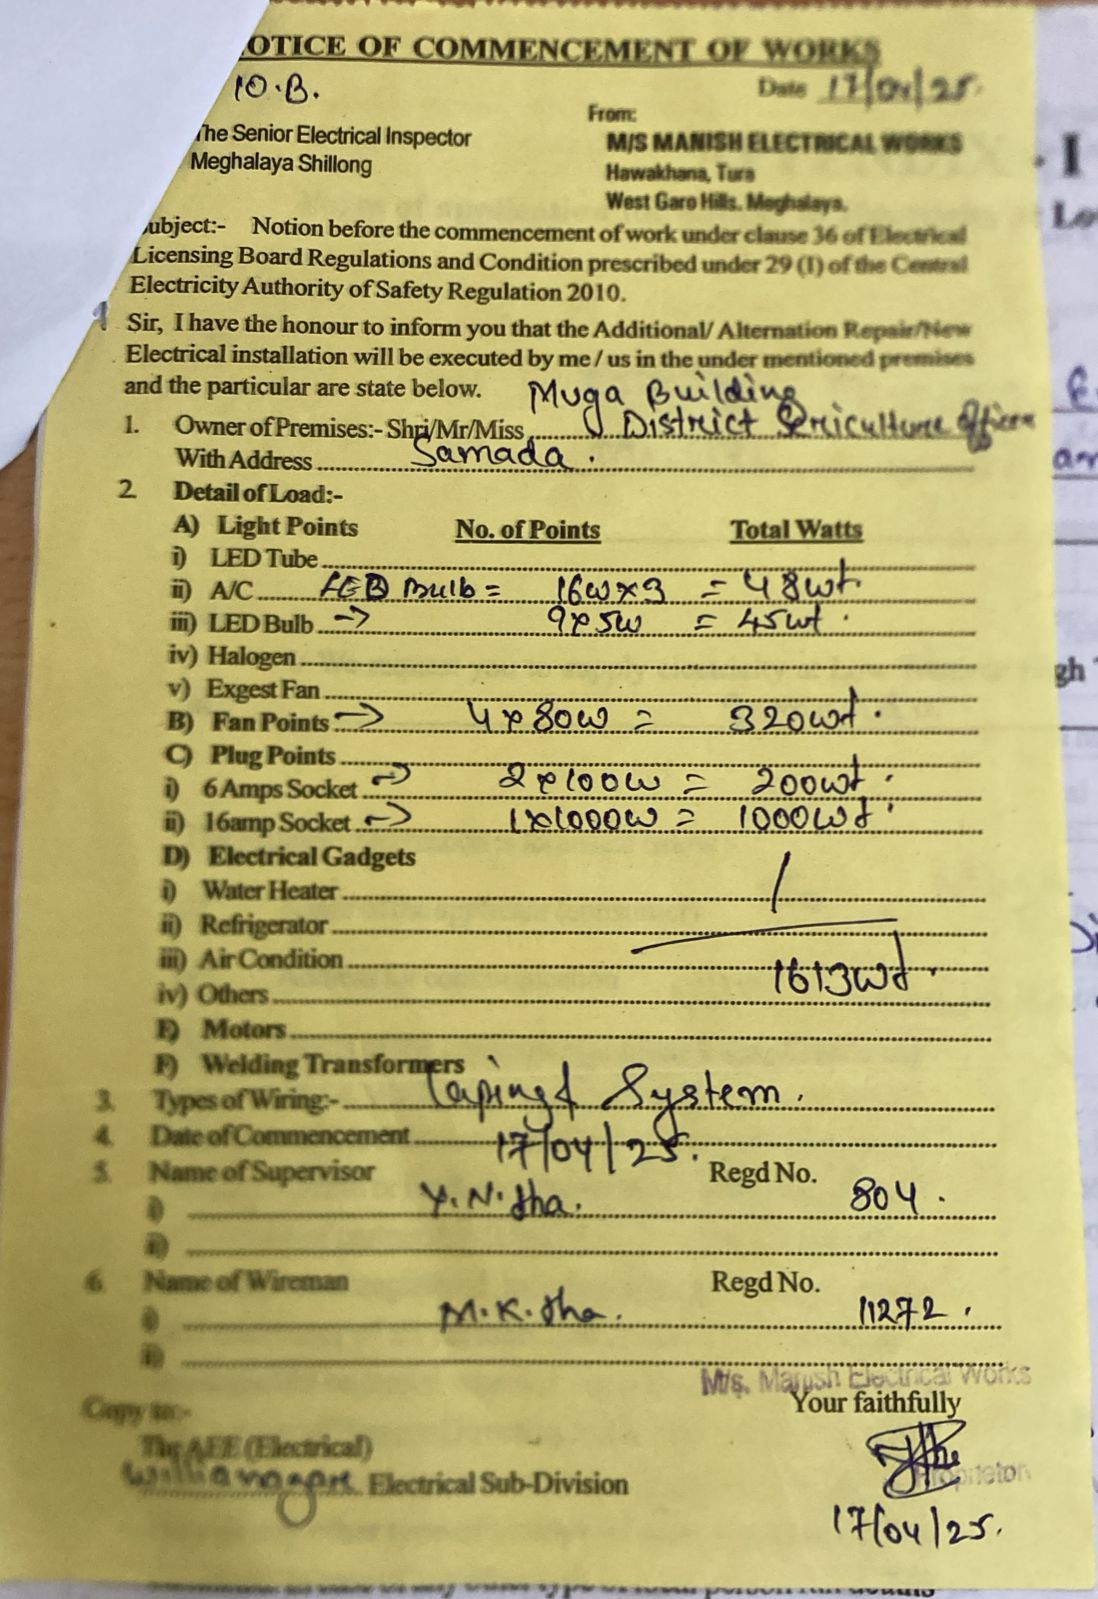 OTICE OF COMMENCEMENT OF WORKS
10.B.
Date 17/04/25
The Senior Electrical Inspector
Meghalaya Shillong
From:
M/S MANISH ELECTRICAL WORKS
Hawakhana, Tura
West Garo Hills. Meghalaya.
ubject:- Notion before the commencement of work under clause 36 of Electrical
Licensing Board Regulations and Condition prescribed under 29 (I) of the Central
Electricity Authority of Safety Regulation 2010.
Sir, I have the honour to inform you that the Additional/ Alternation Repair/New
Electrical installation will be executed by me / us in the under mentioned premises
and the particular are state below. Muga Building
1. Owner of Premises:- Shri/Mr/Miss District Sericulture Officer
With Address Samada.
2 Detail of Load:-
A) Light Points No. of Points Total Watts
i) LED Tube
ii) A/C LED Bulb = 16w×3 = 48wt
iii) LED Bulb → 9×5w = 45wt.
iv) Halogen
v) Exgest Fan
B) Fan Points → 4×80w = 320wt.
C) Plug Points
i) 6 Amps Socket → 2×100w = 200wt.
ii) 16amp Socket → 1×1000w = 1000wt
D) Electrical Gadgets
i) Water Heater
ii) Refrigerator
iii) Air Condition 1613wt.
iv) Others
E) Motors
F) Welding Transformers
3. Types of Wiring:- System.
4. Date of Commencement 17/04/25.
5. Name of Supervisor Regd No.
i) Y.N.Jha. 804.
ii)
6. Name of Wireman Regd No.
i) M.K.Jha. 11272.
ii)
M/s. Manish Electrical Works
Your faithfully
Copy to:-
The AEE (Electrical)
Williamnagar Electrical Sub-Division
Proprietor
17/04/25.